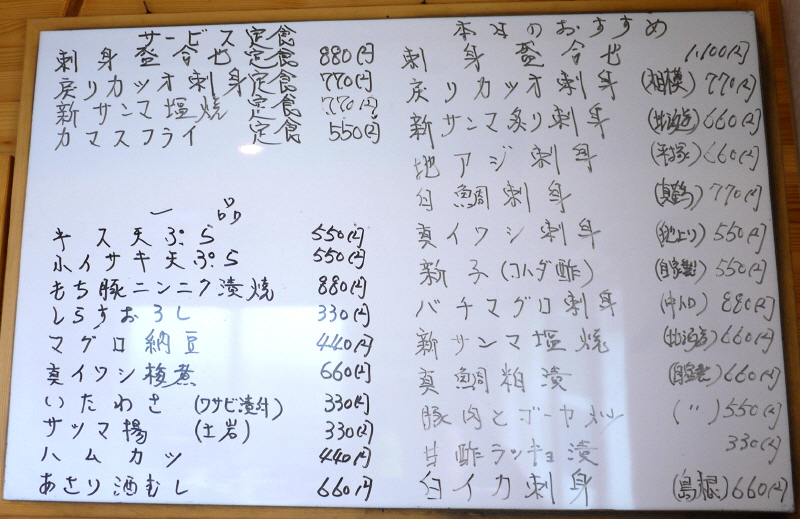 サービス定食
刺身盛合せ定食 880円
戻りカツオ刺身定食 770円
新サンマ塩焼定食 770円
カマスフライ定食 550円
一品
キス天ぷら 550円
小イサキ天ぷら 550円
もち豚ニンニク漬焼 880円
しらすおろし 330円
マグロ納豆 440円
真イワシ梅煮 660円
いたわさ (ワサビ漬付) 330円
サツマ揚 (土岩) 330円
ハムカツ 440円
あさり酒むし 660円
本日のおすすめ
刺身盛合せ 1,100円
戻りカツオ刺身 (相模) 770円
新サンマ炙り刺身 (北海道) 660円
地アジ刺身 (平塚) 660円
白鯛刺身 (真鶴) 770円
真イワシ刺身 550円
新子(コハダ酢) (自家製) 550円
バチマグロ刺身 (中トロ) 880円
新サンマ塩焼 (北海道) 660円
真鯛粕漬 (自家製) 660円
豚肉とゴーヤ炒 (〃) 550円
甘酢ラッキョ漬 330円
白イカ刺身 (島根) 660円